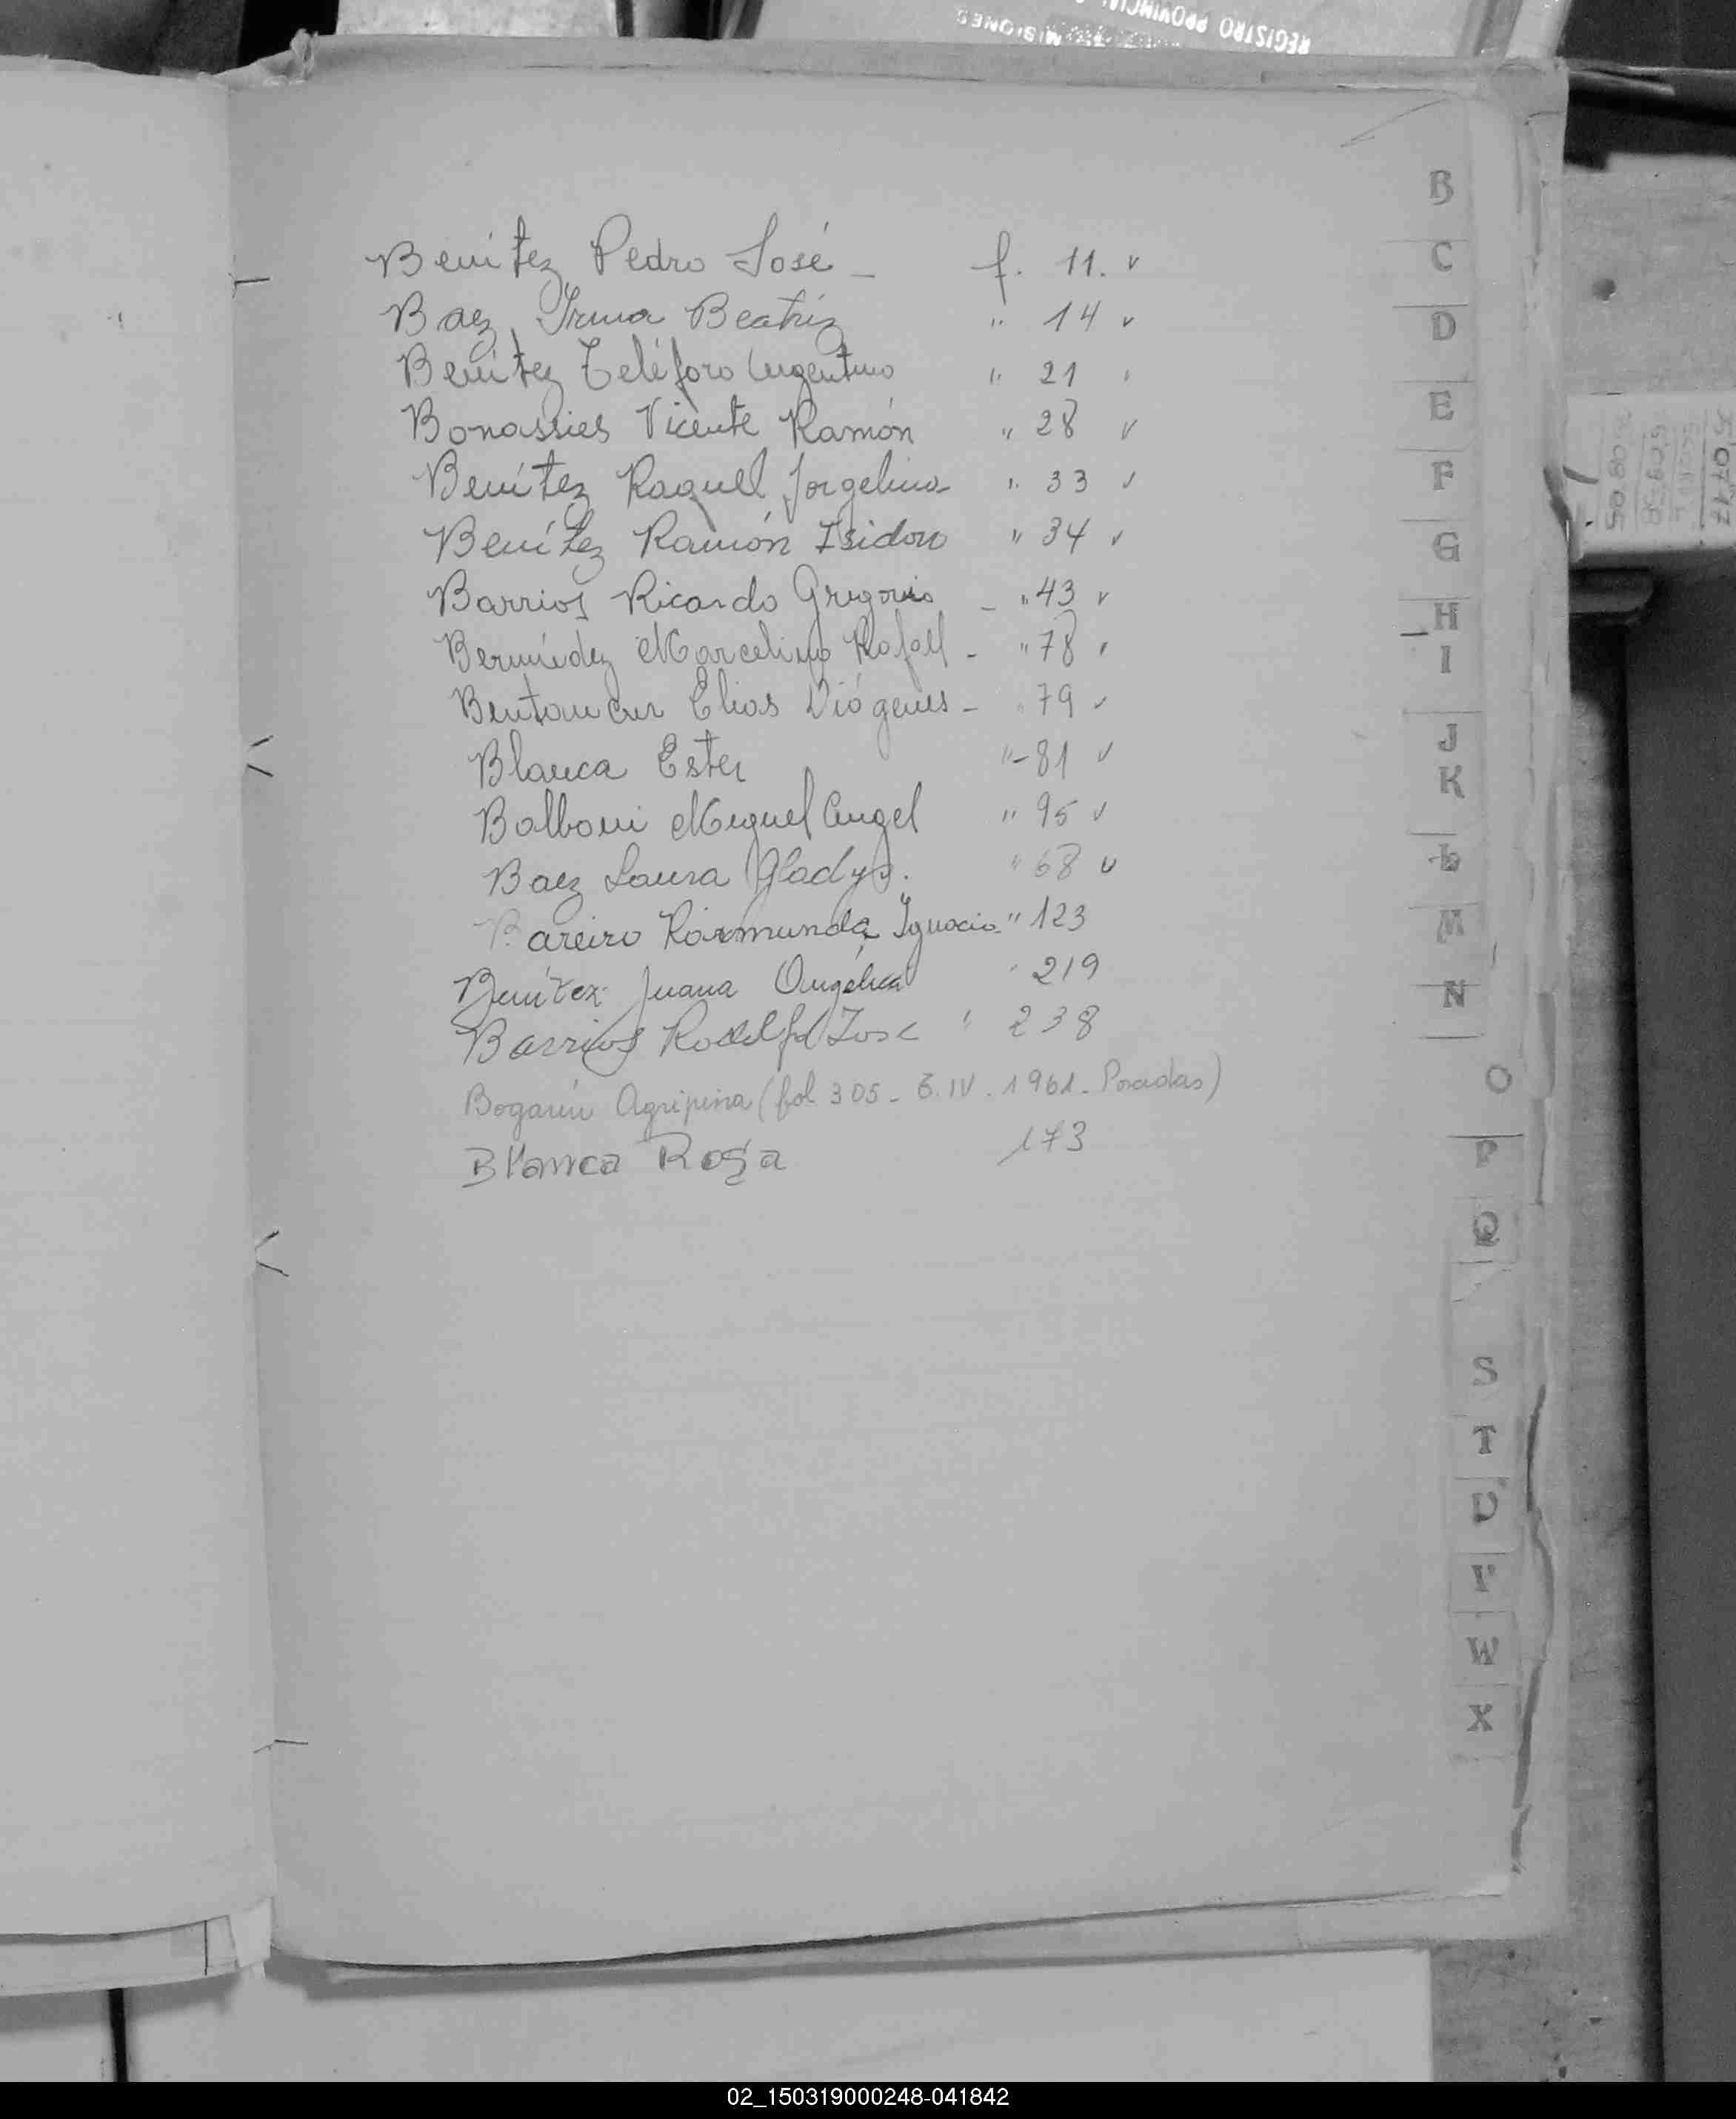 REGISTRO PROVINCIAL
MISIONES
Benítez Pedro José - f. 11. v
Baez Irma Beatriz " 14 v
Benítez Teléforo Argentino " 21
Bonassies Vicente Ramón " 28 v
Benítez Raquel Jorgelina " 33 v
Benítez Ramón Isidoro " 34 v
Barrios Ricardo Gregorio - " 43 v
Bermúdez Marcelino Rafael - " 78 v
Bentancur Elias Diógenes - " 79 v
Blanca Ester " - 81 v
Balboni Miguel Angel " 95 v
Baez Laura Gladys. " 68 v
Bareiro Raimunda Ignacia " 123
Benítez Juana Angélica " 219
Barrios Rodolfo Jose " 238
Bogarín Agripina (fol 305 - 6. IV. 1961 - Posadas)
Blanca Rosa 173
B
C
D
E
F
G
H
I
J
K
L
M
N
O
P
Q
S
T
U
V
W
X
02_150319000248-041842